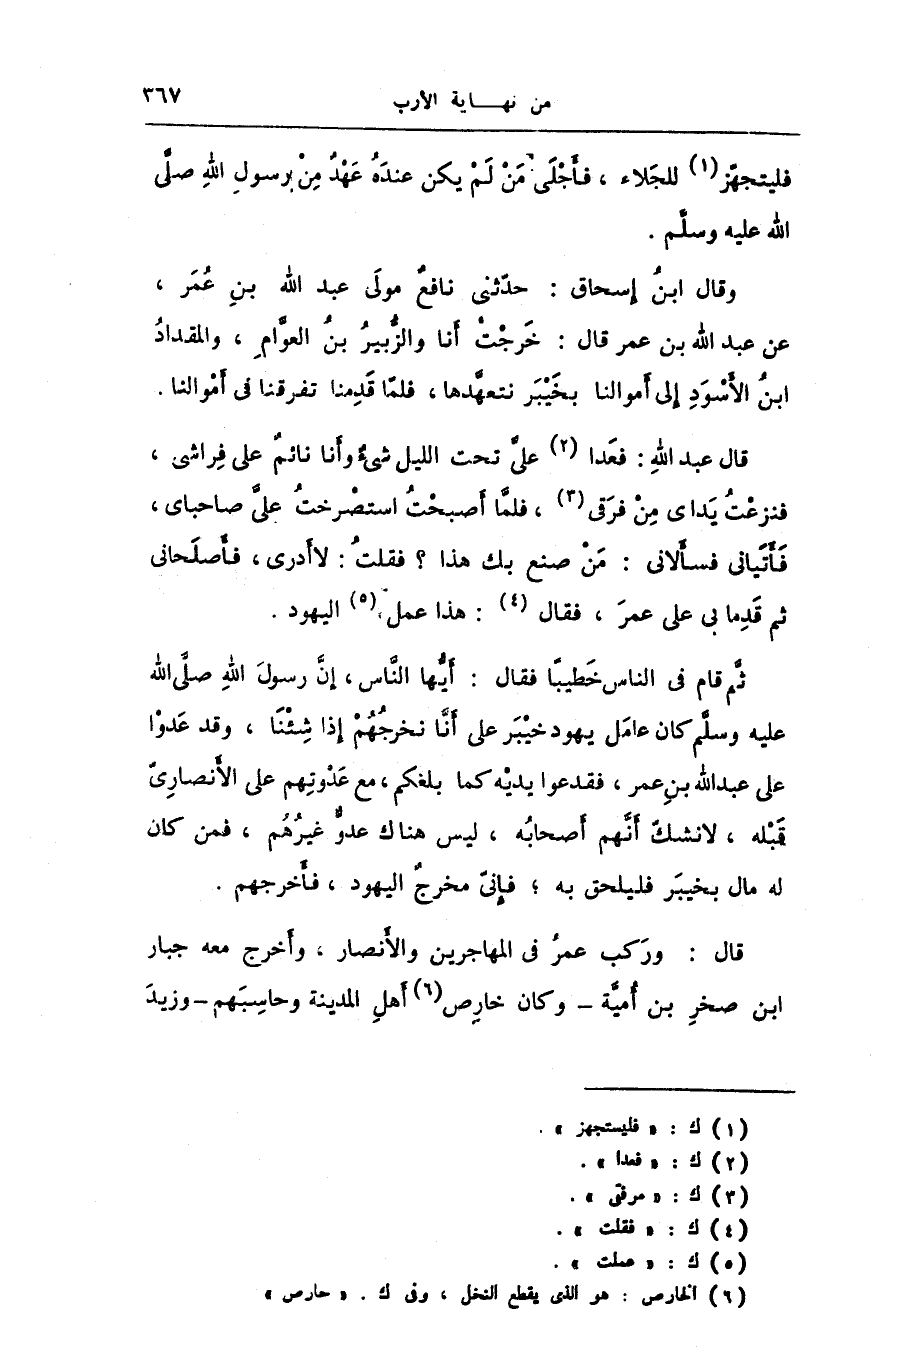 من نهاية الأرب ٣٦٧
فليتجهّز (١) للجَلاء ، فأَجْلَى مَنْ لَمْ يكن عندَهُ عَهْدٌ مِنْ رسولِ اللهِ صلَّى
الله عليه وسلَّم .
وقال ابنُ إسحاق : حدّثنى نافعٌ مولَى عبد الله بنِ عُمَر ،
عن عبد الله بن عمر قال : خَرجْتْ أنا والزُّبيرُ بنُ العوَّامِ ، والمقدادُ
ابنُ الأَسْوَدِ إلى أموالنا بخَيْبَر نتعهَّدها ، فلمّا قَدِمنا تفرقنا فى أَمْوالنا .
قال عبد اللهِ : فعَدا (٢) علىَّ تحت الليل شىءٌ وأَنا نائمٌ على فِراشى ،
فنزعْتُ يَداى مِنْ فرَقى (٣) ، فلمَّا أصبحْتُ استصْرختُ علىَّ صاحباى ،
فَأَتَيانى فسأَلانى : مَنْ صنع بك هذا ؟ فقلتُ : لاأَدرى ، فأَصلَحانى
ثم قَدِما بى على عمرَ ، فقال (٤) : هذا عمل (٥) اليهود .
ثُم قام فى الناس خَطيبًا فقال : أَيُّها النَّاس ، إنَّ رسولَ اللهِ صلَّى الله
عليه وسلَّم كان عامَل يهود خيْبَر على أَنَّا نخرجُهُمْ إذا شِئْنَا ، وقد عَدوْا
على عبدالله بنِ عمر ، فقدعوا يديْه كما بلغكم ، مع عَدْوتِهم على الأَنصارىّ
قَبْله ، لانشكّ أَنَّهم أَصحابُه ، ليس هناك عدوٌّ غيرُهُم ، فمن كان
له مال بخيبَر فليلحق به ؛ فإِنىّ مخرجٌ اليهود ، فأَخرجهم .
قال : ورَكب عمرُ فى المهاجرين والأَنصار ، وأَخرج معه جبار
ابن صخرِ بن أُميَّة – وكان خارِص (٦) أَهلِ المدينة وحاسِبَهم – وزيدَ
(١) ك : « فليستجهز » .
(٢) ك : « فعدا » .
(٣) ك : « مرفقى » .
(٤) ك : « فقلت » .
(٥) ك : « عملت » .
(٦) الخارص : هو الذى يقطع النخل ، وفى ك . « حارص »